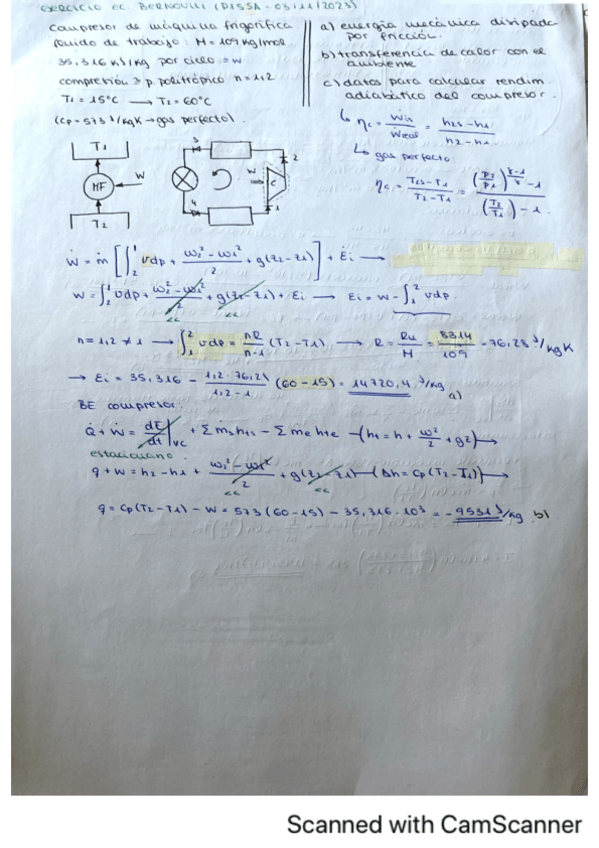 EXERCICIO EC. BERNOULLI (PISSA - 03/11/2023)
Compresor de máquina frigorífica
fluido de trabajo: M = 109 kg/kmol
35,316 kJ/kg por ciclo = w
compresión → p. politrópico n = 1,2
T1 = 15°C → T2 = 60°C
(Cp = 573 J/kgK → gas perfecto)
a) energía mecánica disipada
por fricción.
b) transferencia de calor con el
ambiente
c) datos para calcular rendim.
adiabático del compresor.
ηc = Wis/Wreal = (h2s - h1)/(h2 - h1)
gas perfecto
ηc = (T2s - T1)/(T2 - T1) = ((P2/P1)^((γ-1)/γ) - 1)/((T2/T1) - 1)
T1
MF
W
T2
3
2
W
C
4
1
Ẇ = ṁ [∫₂¹ vdp + (w₂² - w₁²)/2 + g(z₂ - z₁)] + Ėi →
w = ∫₁² vdp + (w₂² - w₁²)/2 + g(z₂ - z₁) + Ei → Ei = w - ∫₁² vdp
<< <<
n = 1,2 ≠ 1 → ∫₁² vdp = nR/(n-1) (T2 - T1) → R = Ru/M = 8314/109 = 76,28 J/kgK
→ Ei = 35,316 - (1,2 · 76,28)/(1,2 - 1) (60 - 15) = 14720,4 J/kg
a)
BE compresor:
Q̇ + Ẇ = dE/dt|VC + Σ ṁs hts - Σ ṁe hte → (ht = h + w²/2 + gz) →
estacionario
q + w = h2 - h1 + (w₂² - w₁²)/2 + g(z₂ - z₁) → (Δh = Cp(T2 - T1)) →
<< <<
q = Cp(T2 - T1) - w = 573 (60 - 15) - 35,316 · 10³ = -9531 J/kg b)
Scanned with CamScanner